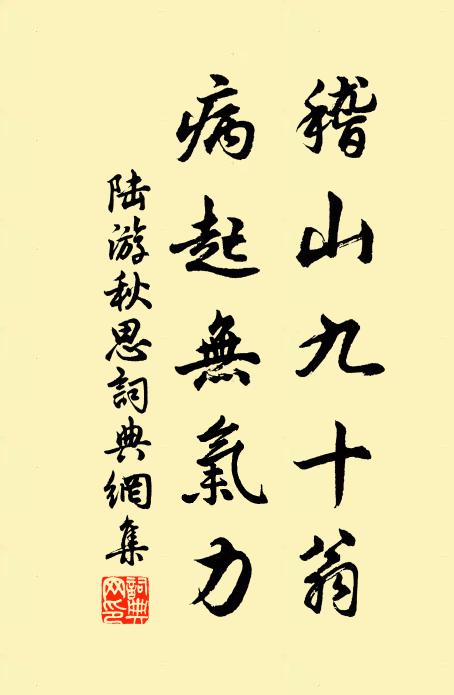 稽山九十翁
病起無氣力
陆游秋思詞典網集
詞典網印